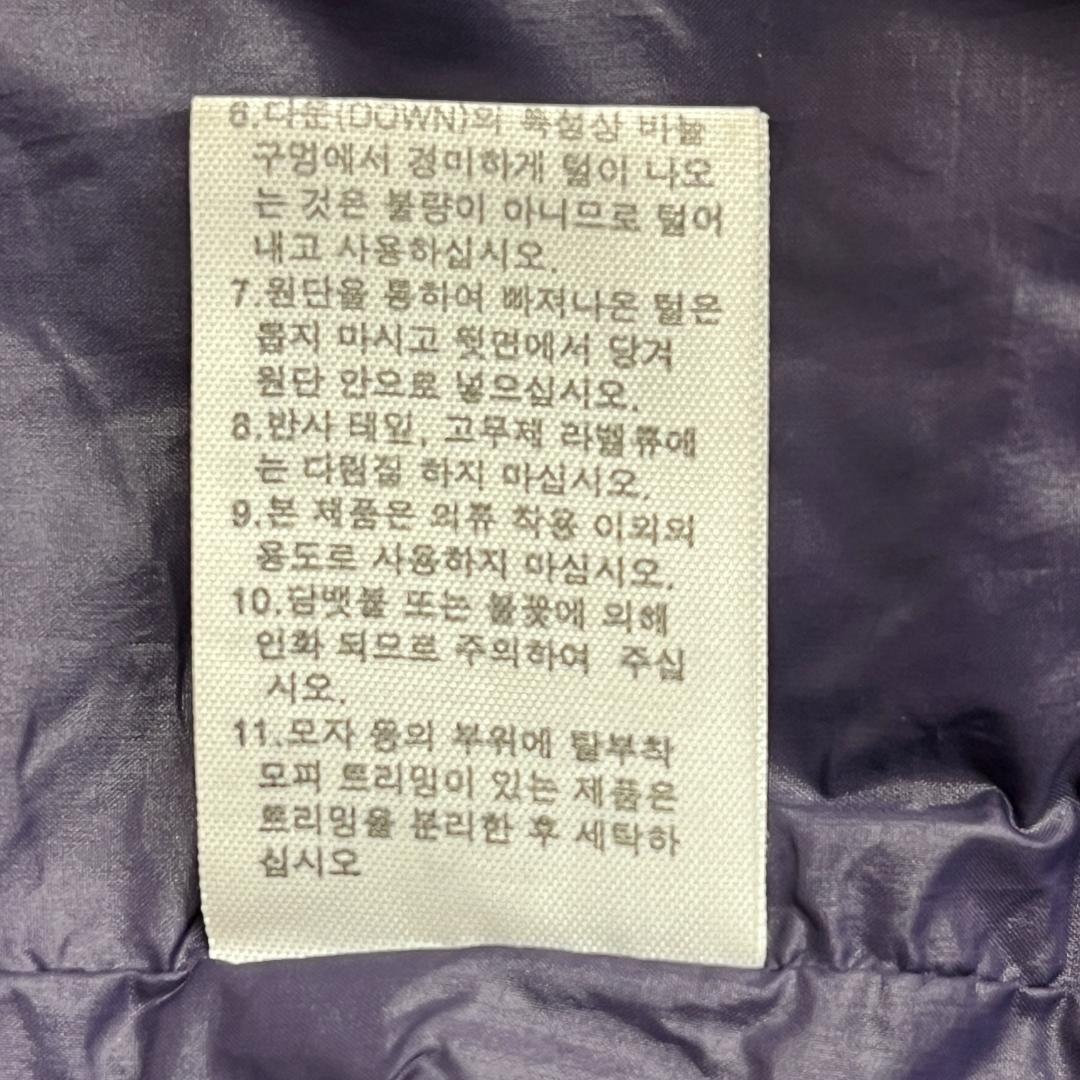 6.다운(DOWN)의 특성상 바늘
구멍에서 경미하게 털이 나오
는 것은 불량이 아니므로 털어
내고 사용하십시오.
7.원단을 통하여 빠져나온 털은
뽑지 마시고 뒷면에서 당겨
원단 안으로 넣으십시오.
8.반사 테잎, 고무제 라벨류에
는 다림질 하지 마십시오.
9.본 제품은 의류 착용 이외의
용도로 사용하지 마십시오.
10.담뱃불 또는 불꽃에 의해
인화 되므로 주의하여 주십
시오.
11.모자 등의 부위에 탈부착
모피 트리밍이 있는 제품은
트리밍을 분리한 후 세탁하
십시오